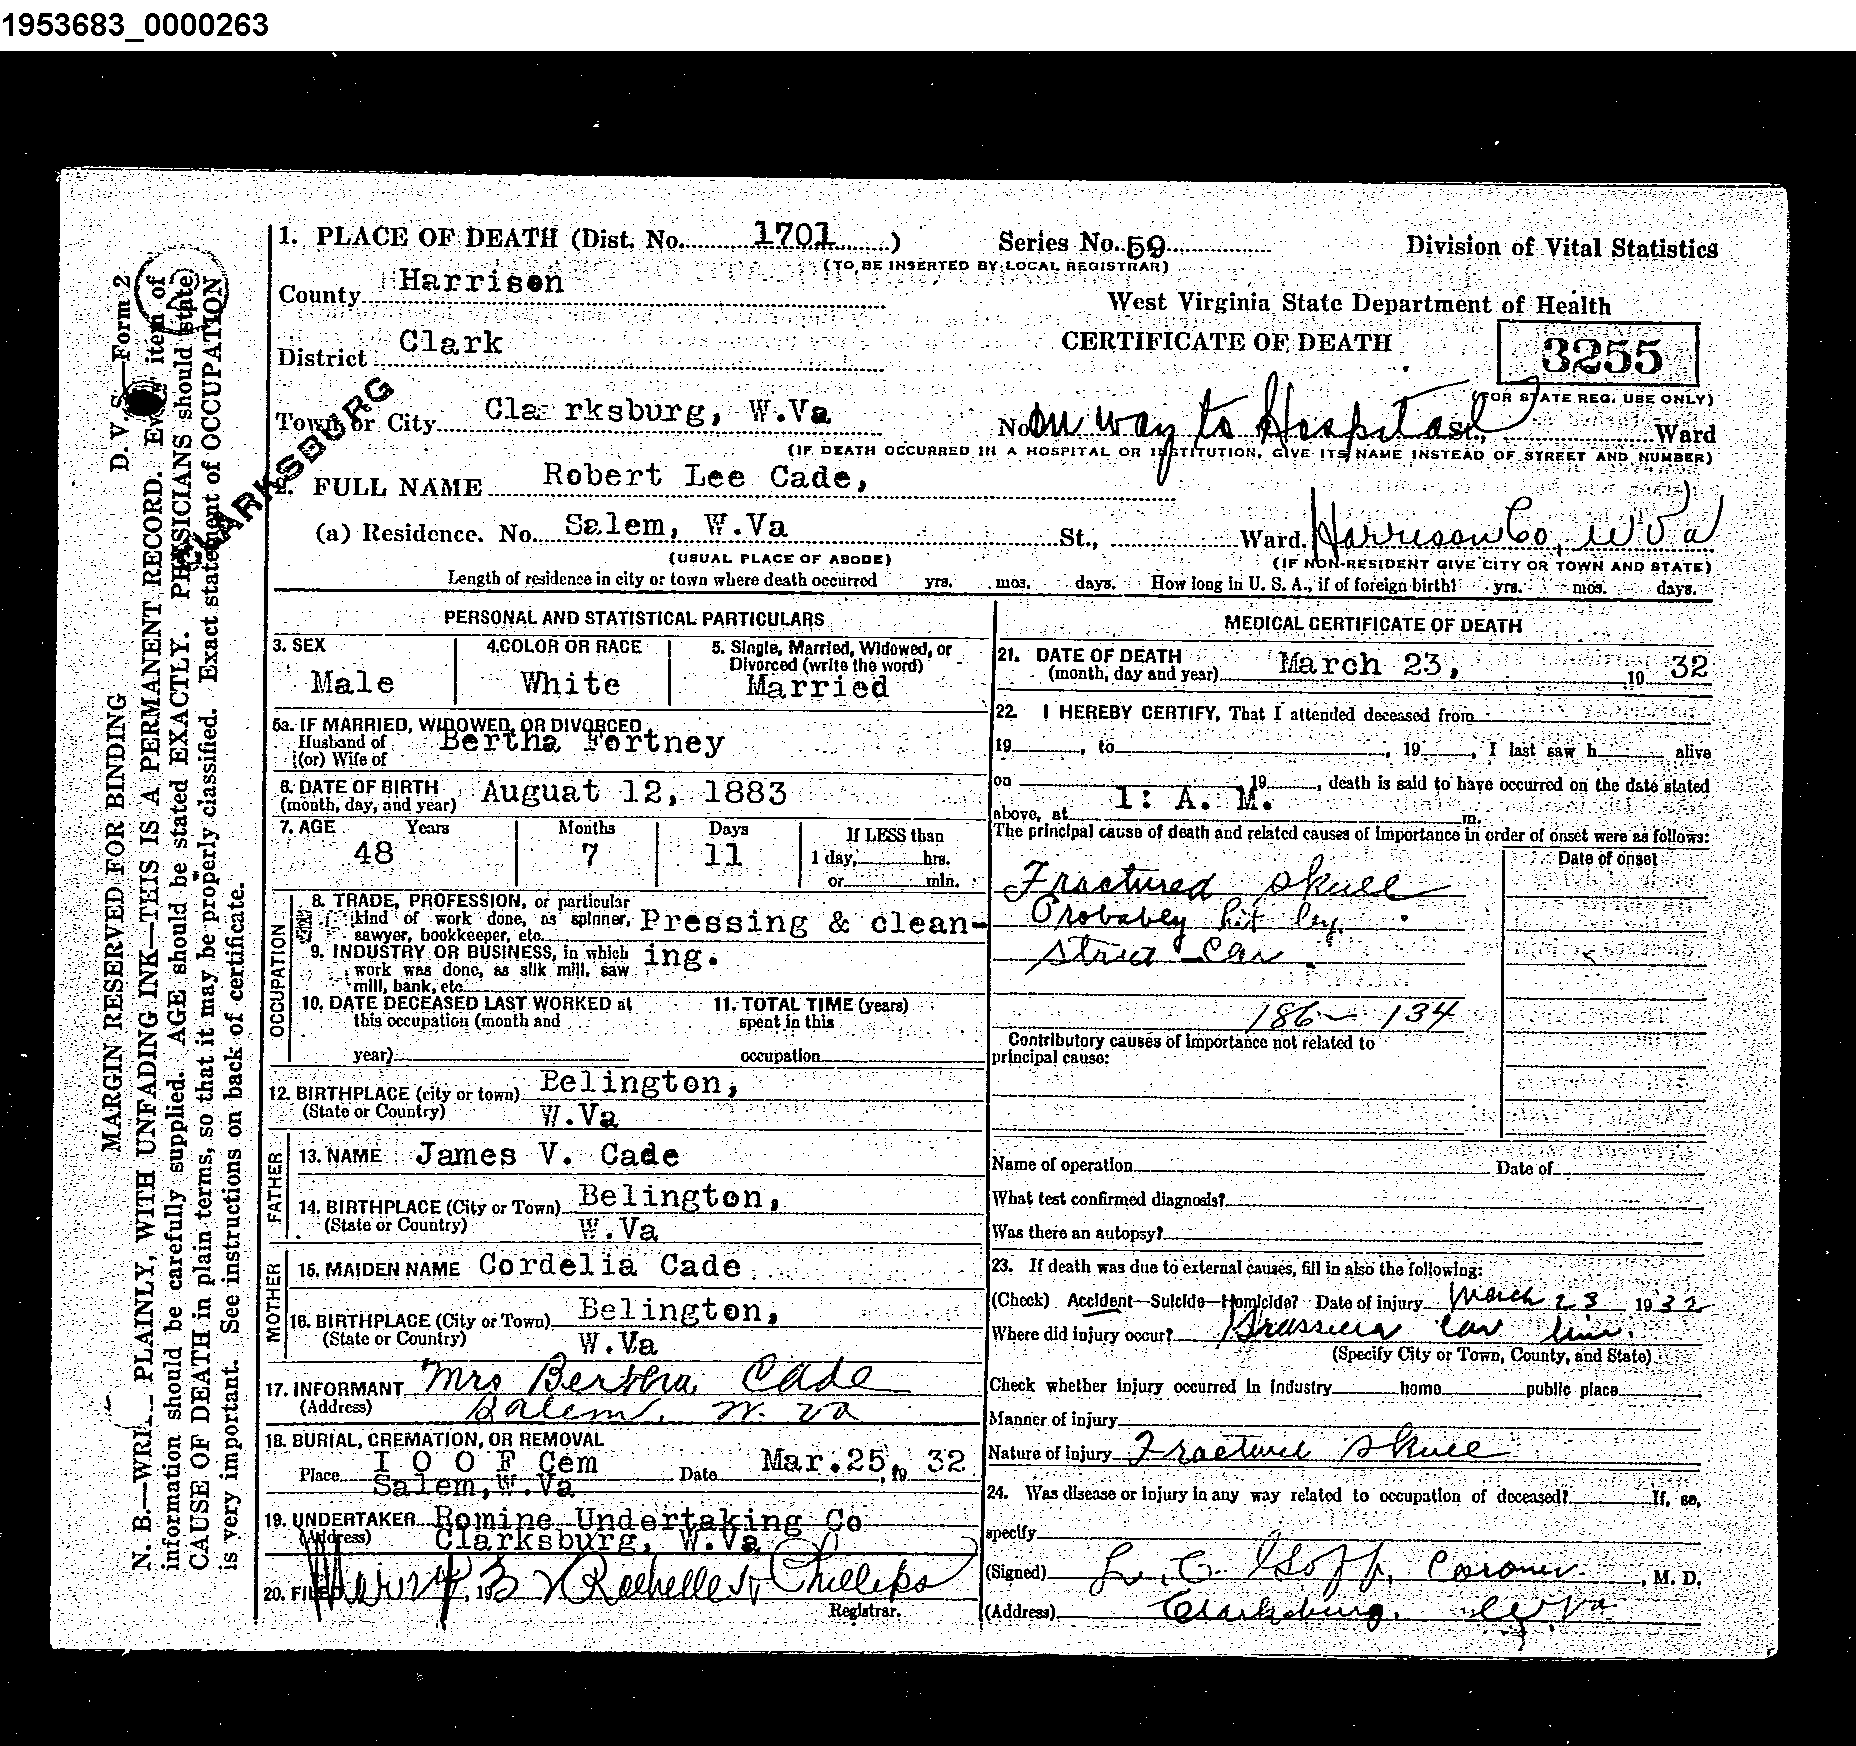 1953683_0000263
1. PLACE OF DEATH (Dist. No. 1701 ) Series No. 59 Division of Vital Statistics
(TO BE INSERTED BY LOCAL REGISTRAR)
County Harrison
West Virginia State Department of Health
District Clark
CERTIFICATE OF DEATH
3255
(FOR STATE REG. USE ONLY)
CLARKSBURG
Town or City Clarksburg, W.Va No. On way to Hospital St., Ward
(IF DEATH OCCURRED IN A HOSPITAL OR INSTITUTION, GIVE ITS NAME INSTEAD OF STREET AND NUMBER)
2. FULL NAME Robert Lee Cade,
(a) Residence. No. Salem, W.Va St., Ward. Harrison Co, W Va
(USUAL PLACE OF ABODE) (IF NON-RESIDENT GIVE CITY OR TOWN AND STATE)
Length of residence in city or town where death occurred yrs. mos. days. How long in U. S. A., if of foreign birth? yrs. mos. days.
PERSONAL AND STATISTICAL PARTICULARS
3. SEX 4. COLOR OR RACE 5. Single, Married, Widowed, or
Divorced (write the word)
Male White Married
5a. IF MARRIED, WIDOWED, OR DIVORCED
Husband of Bertha Fortney
(or) Wife of
6. DATE OF BIRTH
(month, day, and year) Auguat 12, 1883
7. AGE Years Months Days If LESS than
48 7 11 1 day, hrs.
or min.
OCCUPATION
8. TRADE, PROFESSION, or particular
kind of work done, as spinner, Pressing & clean-
sawyer, bookkeeper, etc.
9. INDUSTRY OR BUSINESS, in which ing.
work was done, as silk mill, saw
mill, bank, etc.
10. DATE DECEASED LAST WORKED at 11. TOTAL TIME (years)
this occupation (month and spent in this
year) occupation
12. BIRTHPLACE (city or town) Belington,
(State or Country) W.Va
FATHER
13. NAME James V. Cade
14. BIRTHPLACE (City or Town) Belington,
(State or Country) W.Va
MOTHER
15. MAIDEN NAME Cordelia Cade
16. BIRTHPLACE (City or Town) Belington,
(State or Country) W.Va
17. INFORMANT Mrs Bertha Cade
(Address) Salem, W. Va
18. BURIAL, CREMATION, OR REMOVAL
Place I O O F Cem Date Mar.25, 19 32
Salem, W.Va
19. UNDERTAKER Romine Undertaking Co
(Address) Clarksburg, W.Va
20. FILED 19 32 Rochelle Phillips
Registrar.
MEDICAL CERTIFICATE OF DEATH
21. DATE OF DEATH
(month, day and year) March 23, 19 32
22. I HEREBY CERTIFY, That I attended deceased from
19 , to , 19 , I last saw h alive
on 19 , death is said to have occurred on the date stated
above, at 1: A. M. m.
The principal cause of death and related causes of importance in order of onset were as follows:
Date of onset
Fractured skull
Probabley hit by
street car.
186 - 134
Contributory causes of importance not related to
principal cause:
Name of operation Date of
What test confirmed diagnosis?
Was there an autopsy?
23. If death was due to external causes, fill in also the following:
(Check) Accident—Suicide—Homicide? Date of injury March 23 1932
Where did injury occur? car line.
(Specify City or Town, County, and State)
Check whether injury occurred in industry home public place
Manner of injury
Nature of injury Fractured skull
24. Was disease or injury in any way related to occupation of deceased? If so,
specify
(Signed) L. C. Goff, Coroner , M. D.
(Address) Clarksburg, W.Va
D. V. S.—Form 2
MARGIN RESERVED FOR BINDING
N. B.—WRITE PLAINLY, WITH UNFADING INK—THIS IS A PERMANENT RECORD. Every item of
information should be carefully supplied. AGE should be stated EXACTLY. PHYSICIANS should state
CAUSE OF DEATH in plain terms, so that it may be properly classified. Exact statement of OCCUPATION
is very important. See instructions on back of certificate.